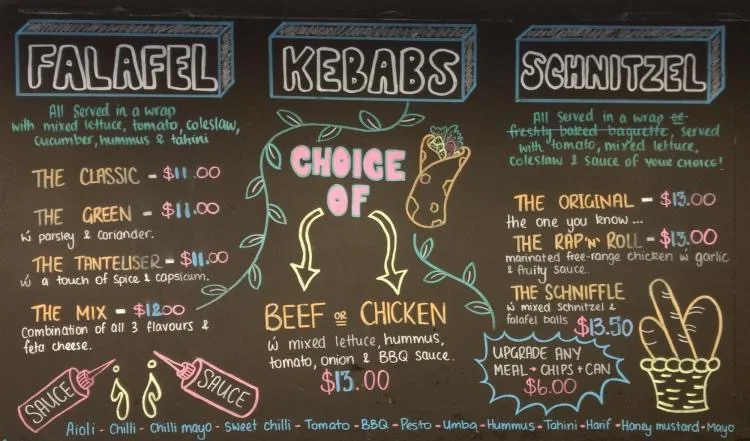 FALAFEL
All served in a wrap
with mixed lettuce, tomato, coleslaw,
cucumber, hummus & tahini
THE CLASSIC - $11.00
THE GREEN - $11.00
w parsley & coriander.
THE TANTELISER - $11.00
w a touch of spice & capsicum.
THE MIX - $12.00
Combination of all 3 flavours &
feta cheese.
SAUCE
SAUCE
KEBABS
CHOICE
OF
BEEF or CHICKEN
w mixed lettuce, hummus,
tomato, onion & BBQ sauce.
$13.00
SCHNITZEL
All served in a wrap or
freshly baked baguette, served
with tomato, mixed lettuce,
coleslaw & sauce of your choice!
THE ORIGINAL - $13.00
the one you know...
THE RAP 'N' ROLL - $13.00
marinated free-range chicken w garlic
& fruity sauce.
THE SCHNIFFLE
w mixed schnitzel &
falafel balls $13.50
UPGRADE ANY
MEAL → CHIPS + CAN
$6.00
Aioli - Chilli - Chilli mayo - Sweet chilli - Tomato - BBQ - Pesto - Umba - Hummus - Tahini - Harif - Honey mustard - Mayo